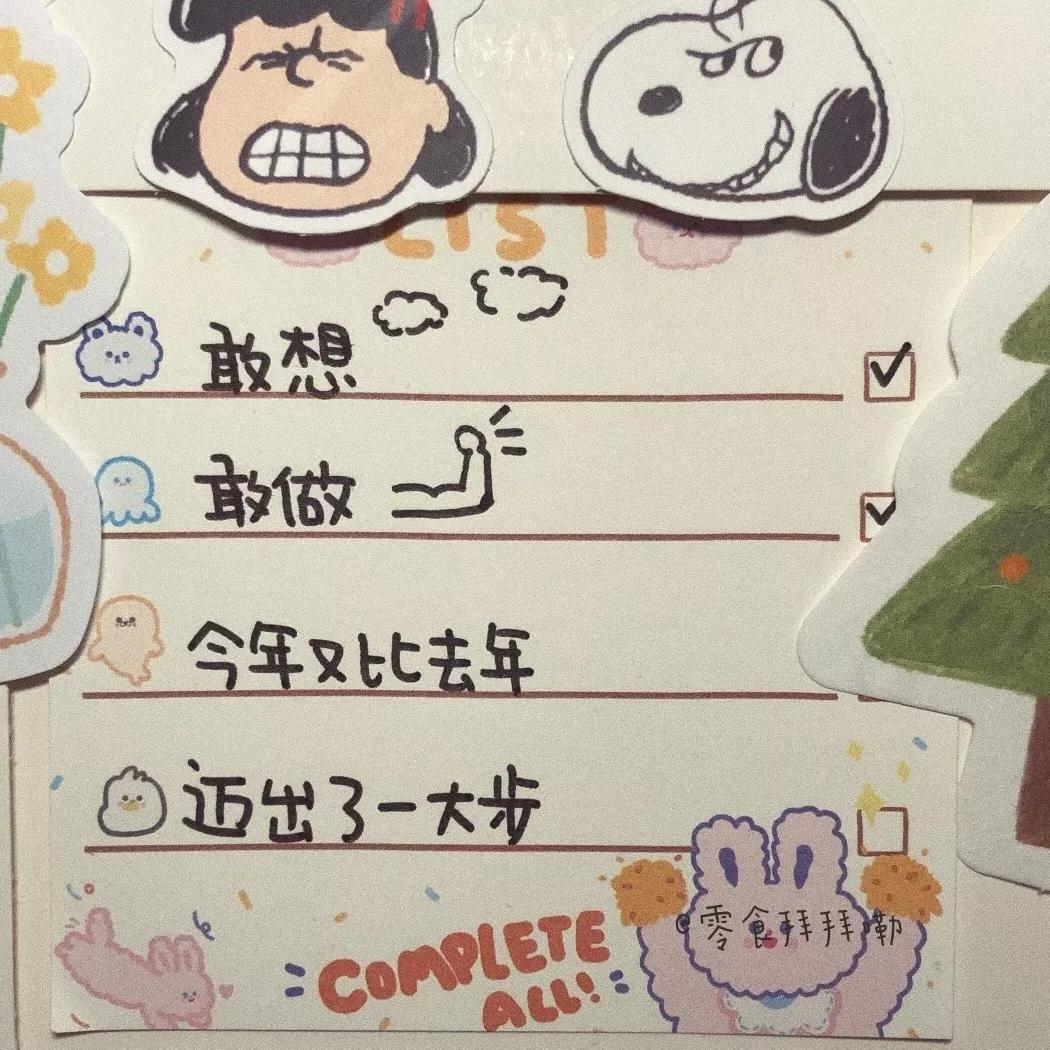 LIST
敢想
敢做
今年又比去年
迈出了一大步
COMPLETE
ALL!
@零食拜拜嘞